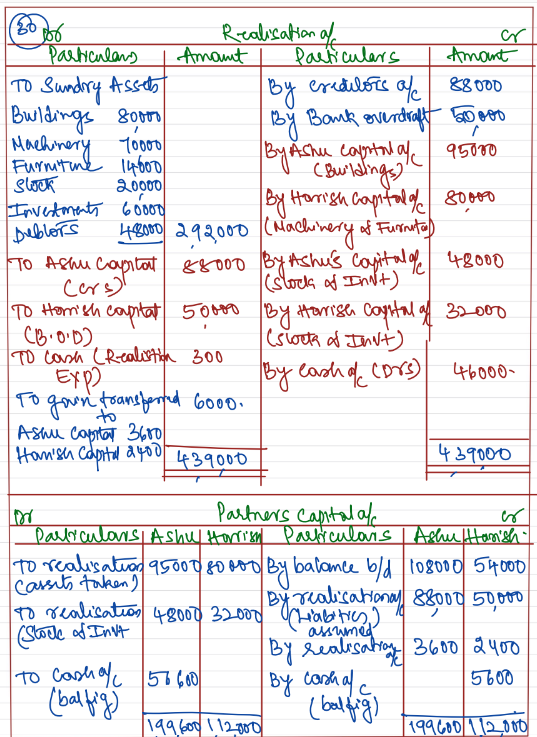 30 Dr Realisation a/c Cr
Particulars Amount Particulars Amount
To Sundry Assets By creditors a/c 88000
Buildings 80000 By Bank overdraft 50000
Machinery 70000 By Ashu capital a/c 95000
Furniture 14000 (Buildings)
Stock 20000 By Harish Capital a/c 80000
Investments 60000 (Machinery & Furnitr)
Debtors 48000 292,000
To Ashu Capital 88000 By Ashu's Capital a/c 48000
(crs) (Stock & Invt)
To Harrish capital 50000 By Harish Capital a/c 32000
(B.O.D) (Stock & Invt)
To Cash (Realistin 300 By Cash a/c (Drs) 46000
Exp)
To gain transferred 6000
to
Ashu Capital 3600
Harrish Capital 2400 439000 439000
Dr Partners Capital a/c Cr
Particulars Ashu Harrish Particulars Ashu Harish
To realisation 95000 80000 By balance b/d 108000 54000
(assets taken) By realisation a/c 88000 50,000
To realisation 48000 32000 (Liabities)
(Stock & Invt assumed
By realisation a/c 3600 2400
To Cash a/c 56600 By Cash a/c 5600
(balfig) (balfig)
199,600 112,000 199600 112,000